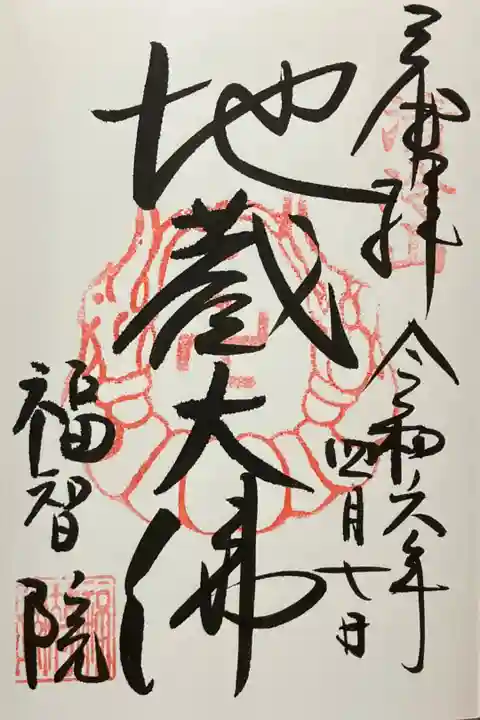 奉拝
令和六年
四月十七日
地蔵大佛
福智院